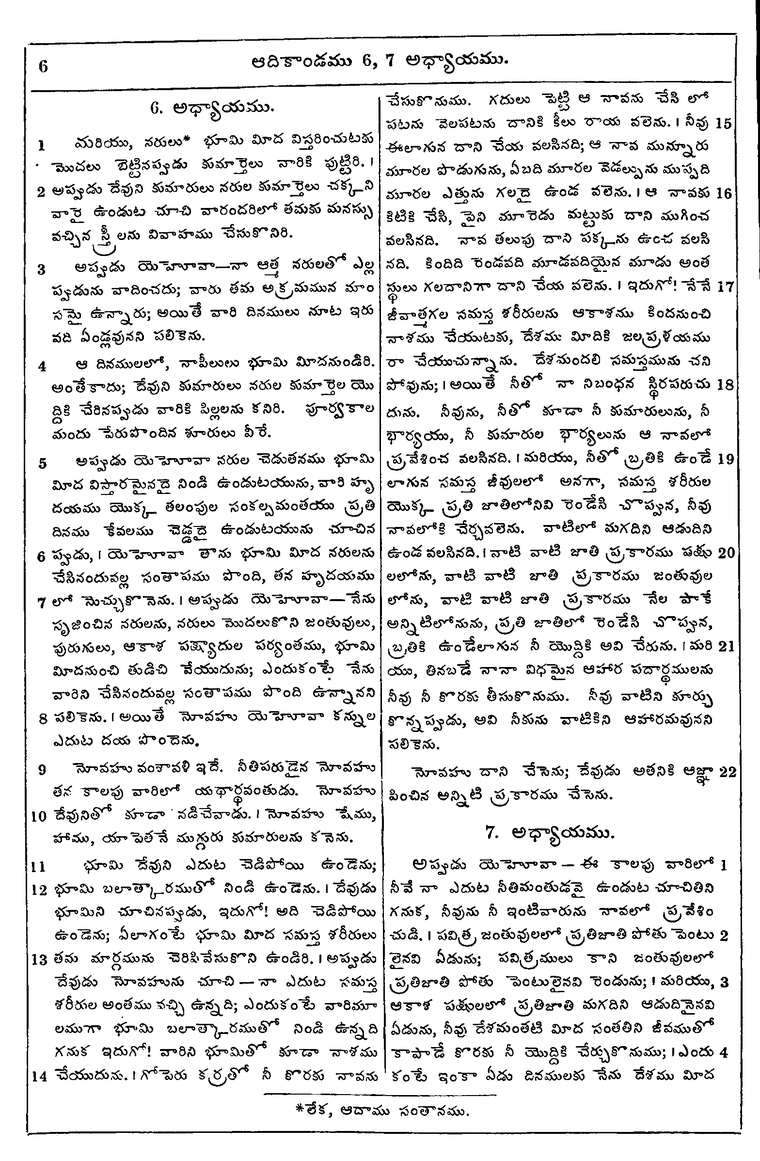 6
ఆదికాండము 6, 7 అధ్యాయము.
6. అధ్యాయము.
1 మరియు, నరులు* భూమి మీద విస్తరించుటకు
మొదలు బెట్టినప్పుడు కుమార్తెలు వారికి పుట్టిరి. ।
2 అప్పుడు దేవుని కుమారులు నరుల కుమార్తెలు చక్కని
వారై ఉండుట చూచి వారందరిలో తమకు మనస్సు
వచ్చిన స్త్రీలను వివాహము చేసుకొనిరి.
3 అప్పుడు యెహోవా—నా ఆత్మ నరులతో ఎల్ల
ప్పుడును వాదించదు; వారు తమ అక్రమమున మాం
సమై ఉన్నారు; అయితే వారి దినములు నూట ఇరు
వది ఏండ్లవునని పలికెను.
4 ఆ దినములలో, నాపీలులు భూమి మీదనుండిరి.
అంతేకాదు; దేవుని కుమారులు నరుల కుమార్తెల యొ
ద్దికి చేరినప్పుడు వారికి పిల్లలను కనిరి. పూర్వకాల
మందు పేరుపొందిన శూరులు వీరే.
5 అప్పుడు యెహోవా నరుల చెడుతనము భూమి
మీద విస్తారమైనదై నిండి ఉండుటయును, వారి హృ
దయము యొక్క తలంపుల సంకల్పమంతయు ప్రతి
దినము కేవలము చెడ్డదై ఉండుటయును చూచిన
6 ప్పుడు, । యెహోవా తాను భూమి మీద నరులను
చేసినందువల్ల సంతాపము పొంది, తన హృదయము
7 లో నొచ్చుకొనెను. । అప్పుడు యెహోవా—నేను
సృజించిన నరులను, నరులు మొదలుకొని జంతువులు,
పురుగులు, ఆకాశ పక్ష్యాదుల పర్యంతము, భూమి
మీదనుంచి తుడిచి వేయుదును; ఎందుకంటే నేను
వారిని చేసినందువల్ల సంతాపము పొంది ఉన్నానని
8 పలికెను. । అయితే నోవహు యెహోవా కన్నుల
ఎదుట దయ పొందెను.
9 నోవహు వంశావళి ఇదే. నీతిపరుడైన నోవహు
తన కాలపు వారిలో యథార్థవంతుడు. నోవహు
10 దేవునితో కూడా నడిచేవాడు. । నోవహు షేము,
హాము, యాపెతనే ముగ్గురు కుమారులను కనెను.
11 భూమి దేవుని ఎదుట చెడిపోయి ఉండెను;
12 భూమి బలాత్కారముతో నిండి ఉండెను. । దేవుడు
భూమిని చూచినప్పుడు, ఇదుగో! అది చెడిపోయి
ఉండెను; ఏలాగంటే భూమి మీద సమస్త శరీరులు
13 తమ మార్గమును చెరిపివేసుకొని ఉండిరి. । అప్పుడు
దేవుడు నోవహును చూచి — నా ఎదుట సమస్త
శరీరుల అంతము వచ్చి ఉన్నది; ఎందుకంటే వారిమూ
లముగా భూమి బలాత్కారముతో నిండి ఉన్నది
గనుక ఇదుగో! వారిని భూమితో కూడా నాశము
14 చేయుదును. । గోపెరు కర్రతో నీ కొరకు నావను
చేసుకొనుము. గదులు పెట్టి ఆ నావను చేసి లో
పటను వెలపటను దానికి కీలు రాయ వలెను. । నీవు 15
ఈలాగున దాని చేయ వలసినది; ఆ నావ మున్నూరు
మూరల పొడుగును, ఏబది మూరల వెడల్పును ముప్పది
మూరల ఎత్తును గలదై ఉండ వలెను. । ఆ నావకు 16
కిటికి చేసి, పైని మూరెడు మట్టుకు దాని ముగించ
వలసినది. నావ తలుపు దాని పక్కను ఉంచ వలసి
నది. కిందిది రెండవది మూడవదియైన మూడు అంత
స్థులు గలదానిగా దాని చేయ వలెను. । ఇదుగో! నేనే 17
జీవాత్మగల సమస్త శరీరులను ఆకాశము కిందనుంచి
నాశము చేయుటకు, దేశము మీదికి జలప్రళయము
రా చేయుచున్నాను. దేశమందలి సమస్తమును చని
పోవును; । అయితే నీతో నా నిబంధన స్థిరపరుచు 18
దును. నీవును, నీతో కూడా నీ కుమారులును, నీ
భార్యయు, నీ కుమారుల భార్యలును ఆ నావలో
ప్రవేశించ వలసినది. । మరియు, నీతో బ్రతికి ఉండే 19
లాగున సమస్త జీవులలో అనగా, సమస్త శరీరుల
యొక్క ప్రతి జాతిలోనివి రెండేసి చొప్పున, నీవు
నావలోకి చేర్చవలెను. వాటిలో మగదిని ఆడుదిని
ఉండ వలసినది. । వాటి వాటి జాతి ప్రకారము పక్షు 20
లలోను, వాటి వాటి జాతి ప్రకారము జంతువుల
లోను, వాటి వాటి జాతి ప్రకారము నేల పాకే
అన్నిటిలోనును, ప్రతి జాతిలో రెండేసి చొప్పున,
బ్రతికి ఉండేలాగున నీ యొద్దికి అవి చేరును. । మరి 21
యు, తినబడే నానా విధమైన ఆహార పదార్థములను
నీవు నీ కొరకు తీసుకొనుము. నీవు వాటిని కూర్చు
కొన్నప్పుడు, అవి నీకును వాటికిని ఆహారమవునని
పలికెను.
నోవహు దాని చేసెను; దేవుడు అతనికి ఆజ్ఞా 22
పించిన అన్నిటి ప్రకారము చేసెను.
7. అధ్యాయము.
అప్పుడు యెహోవా — ఈ కాలపు వారిలో 1
నీవే నా ఎదుట నీతిమంతుడవై ఉండుట చూచితిని
గనుక, నీవును నీ ఇంటివారును నావలో ప్రవేశిం
చుడి. । పవిత్ర జంతువులలో ప్రతిజాతి పోతు పెంటు 2
లైనవి ఏడును; పవిత్రములు కాని జంతువులలో
ప్రతిజాతి పోతు పెంటులైనవి రెండును; । మరియు, 3
ఆకాశ పక్షులలో ప్రతిజాతి మగదిని ఆడుదినైనవి
ఏడును, నీవు దేశమంతటి మీద సంతతిని జీవముతో
కాపాడే కొరకు నీ యొద్దికి చేర్చుకొనుము; । ఎందు 4
కంటే ఇంకా ఏడు దినములకు నేను దేశము మీద
*లేక, ఆదాము సంతానము.